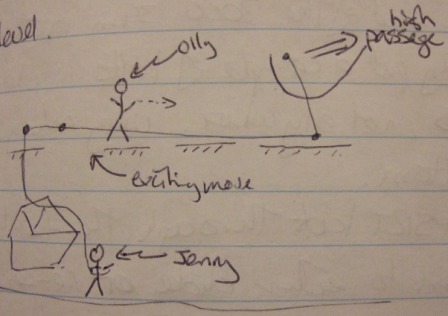 level.
Olly
high
passage
exciting move
Jenny